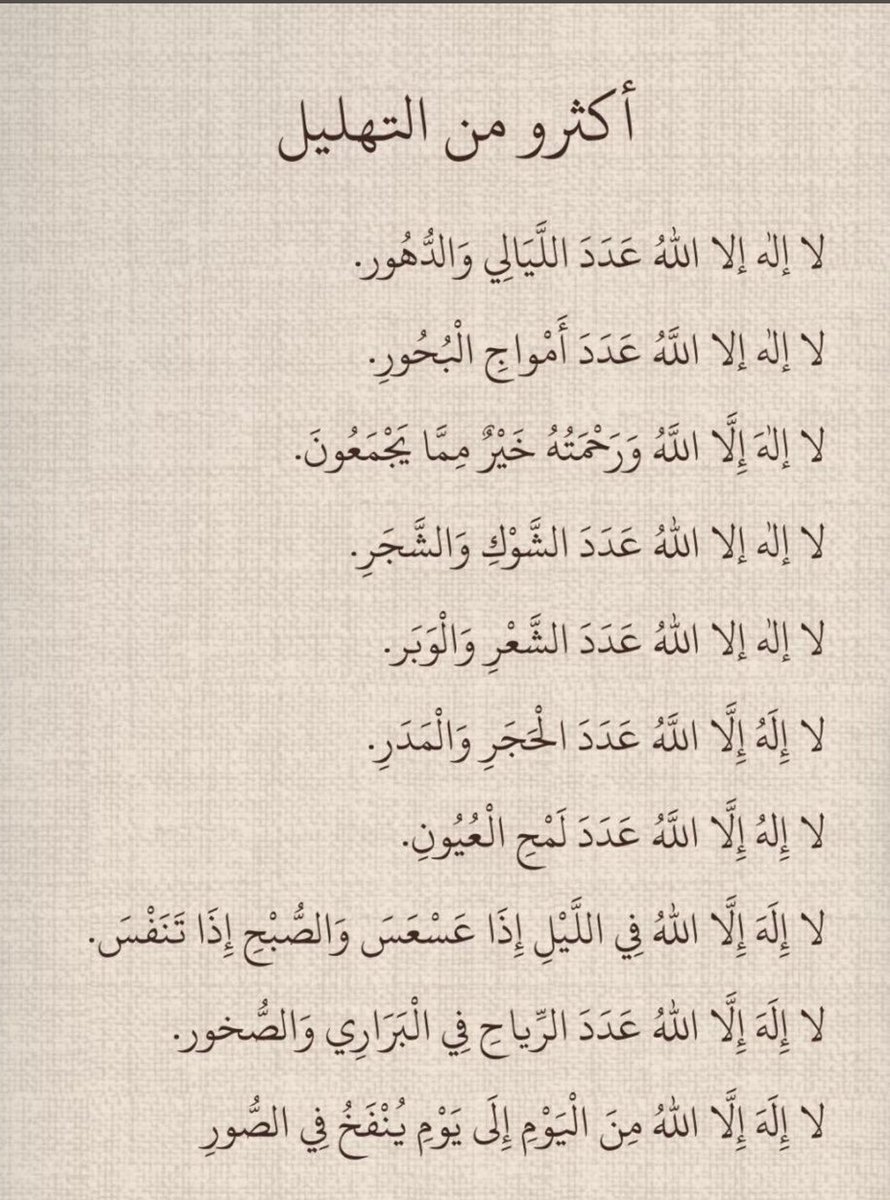 أكثرو من التهليل
لا إلٰه إلا اللهُ عَدَدَ اللَّيَالِي وَالدُّهُور.
لا إلٰه إلا اللَّهُ عَدَدَ أَمْواجِ الْبُحُورِ.
لا إلٰهَ إِلَّا اللَّهُ وَرَحْمَتُهُ خَيْرٌ مِمَّا يَجْمَعُونَ.
لا إلٰه إلا اللهُ عَدَدَ الشَّوْكِ وَالشَّجَرِ.
لا إلٰه إلا اللهُ عَدَدَ الشَّعْرِ وَالْوَبَر.
لا إِلَهُ إِلَّا اللَّهُ عَدَدَ الْحَجَرِ وَالْمَدَرِ.
لا إِلهُ إِلَّا اللَّهُ عَدَدَ لَمْحِ الْعُيُونِ.
لا إِلَهَ إِلَّا اللهُ فِي اللَّيْلِ إِذَا عَسْعَسَ وَالصُّبْحِ إِذَا تَنَفْسَ.
لا إِلَهَ إِلَّا اللهُ عَدَدَ الرِّياحِ فِي الْبَرَارِي وَالصُّخور.
لا إِلَهَ إِلَّا اللهُ مِنَ الْيَوْمِ إِلَى يَوْمِ يُنْفَخُ فِي الصُّورِ